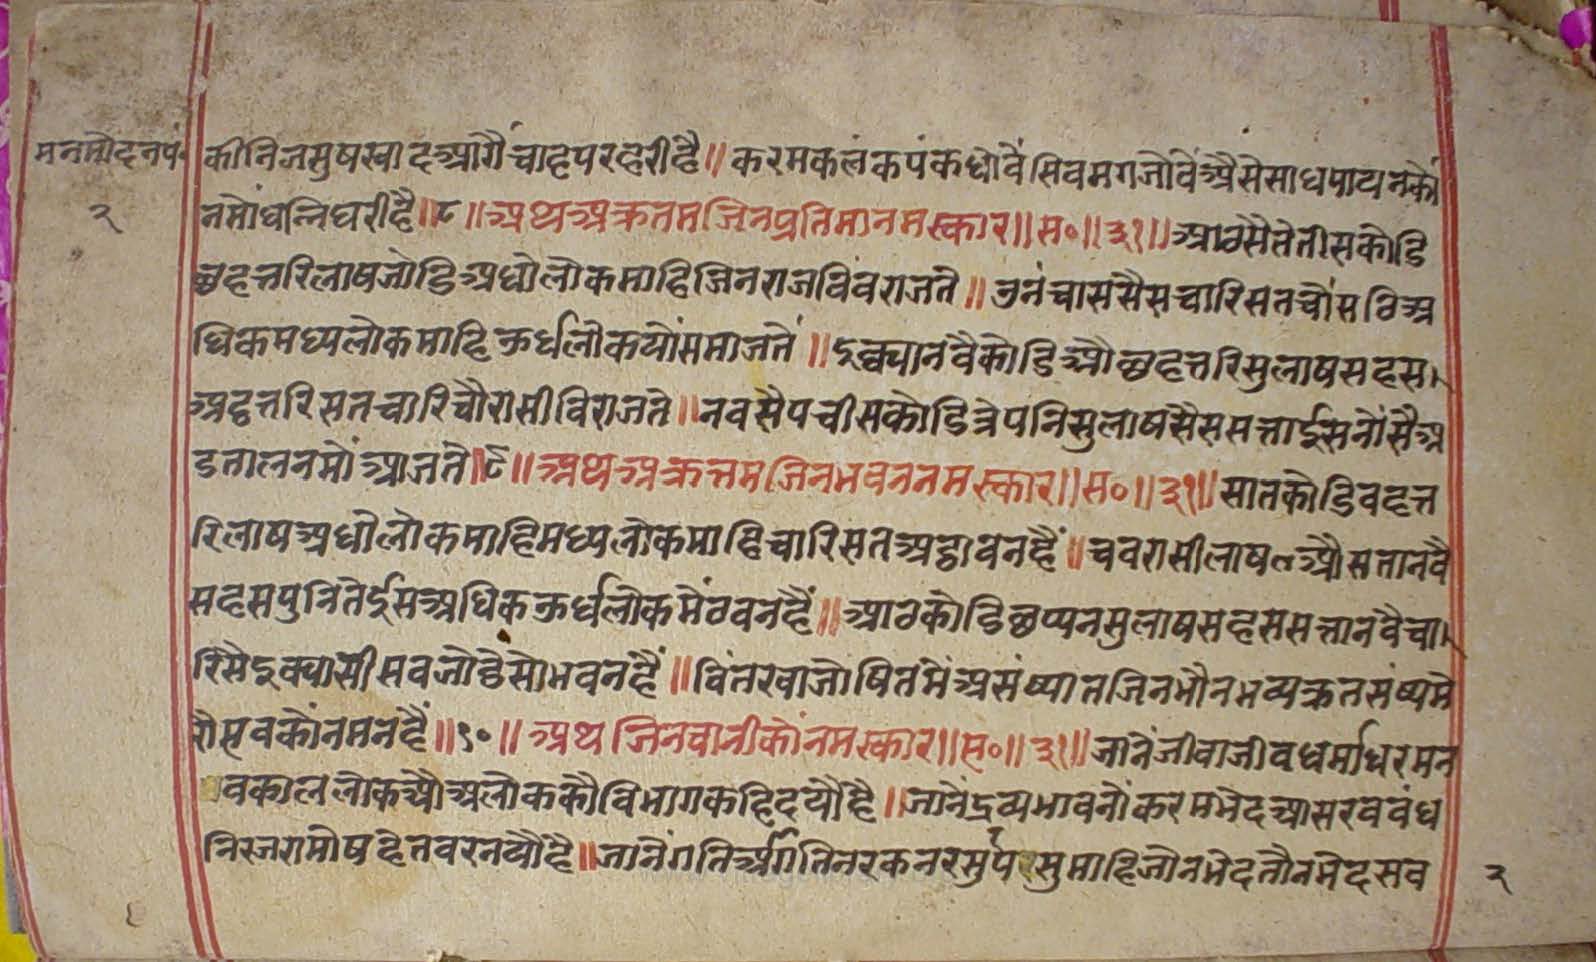 मनमोदनपं॰
२
की निज मुष स्वाद आगै चाह परहरी है॥ करम कलंक पंक धोवै सिव मग जोवै ऐसे साध पायन कौं
नमों धंनि घरी है॥८॥ अथ अक्रतम जिनप्रतिमा नमस्कार॥ स॰॥३१॥ आठ सै तेतीस कोडि
छहत्तरि लाष जोडि अधोलोक माहि जिनराज विंव राजते॥ उनंचास सैस चारि सत चौंसठि अ
धिक मध्यलोक माहि ऊर्धलोक यों समाजते॥ इक्यानवै कोडि औ छहत्तरि सु लाष सहस।
अठ्ठत्तरि सत चारि चौरासी विराजते॥ नव सै पचीस कोडि त्रेपनि सु लाष सैस सत्ताईस नों सै अ
डताल नमों आजते॥९॥ अथ अक्रत्तम जिनभवन नमस्कार॥ स॰॥३१॥ सात कोडि वहत्त
रि लाष अधोलोक माहि मध्यलोक माहि चारि सत अठ्ठावन हैं॥ चवरासी लाष औ सतानवै
सहस पुनि तेईस अधिक ऊर्धलोक मैं ठवन हैं॥ आठ कोडि छप्पन सु लाष सहस सत्तानवै चा।
रि सै इक्यासी सव जोडे सो भवन हैं॥ विंतर वा जोषित में असंष्यात जिनभौन भव्य क्रत संष्य मे
रौ सव कों नमन हैं॥१०॥ अथ जिनवानी कों नमस्कार॥ स॰॥३१॥ जानें जीवाजीव धर्माधरम न
व काल लोक औ अलोक कौ विभाग कहि दयौ है॥ जानें द्रव्य भाव नों करम भेद आसरव वंध
निरजरा मोष हेत वरनयौं है॥ जानें गति अगति नरक नर सुर पसु माहि जोन भेद तौन भेद सव
२